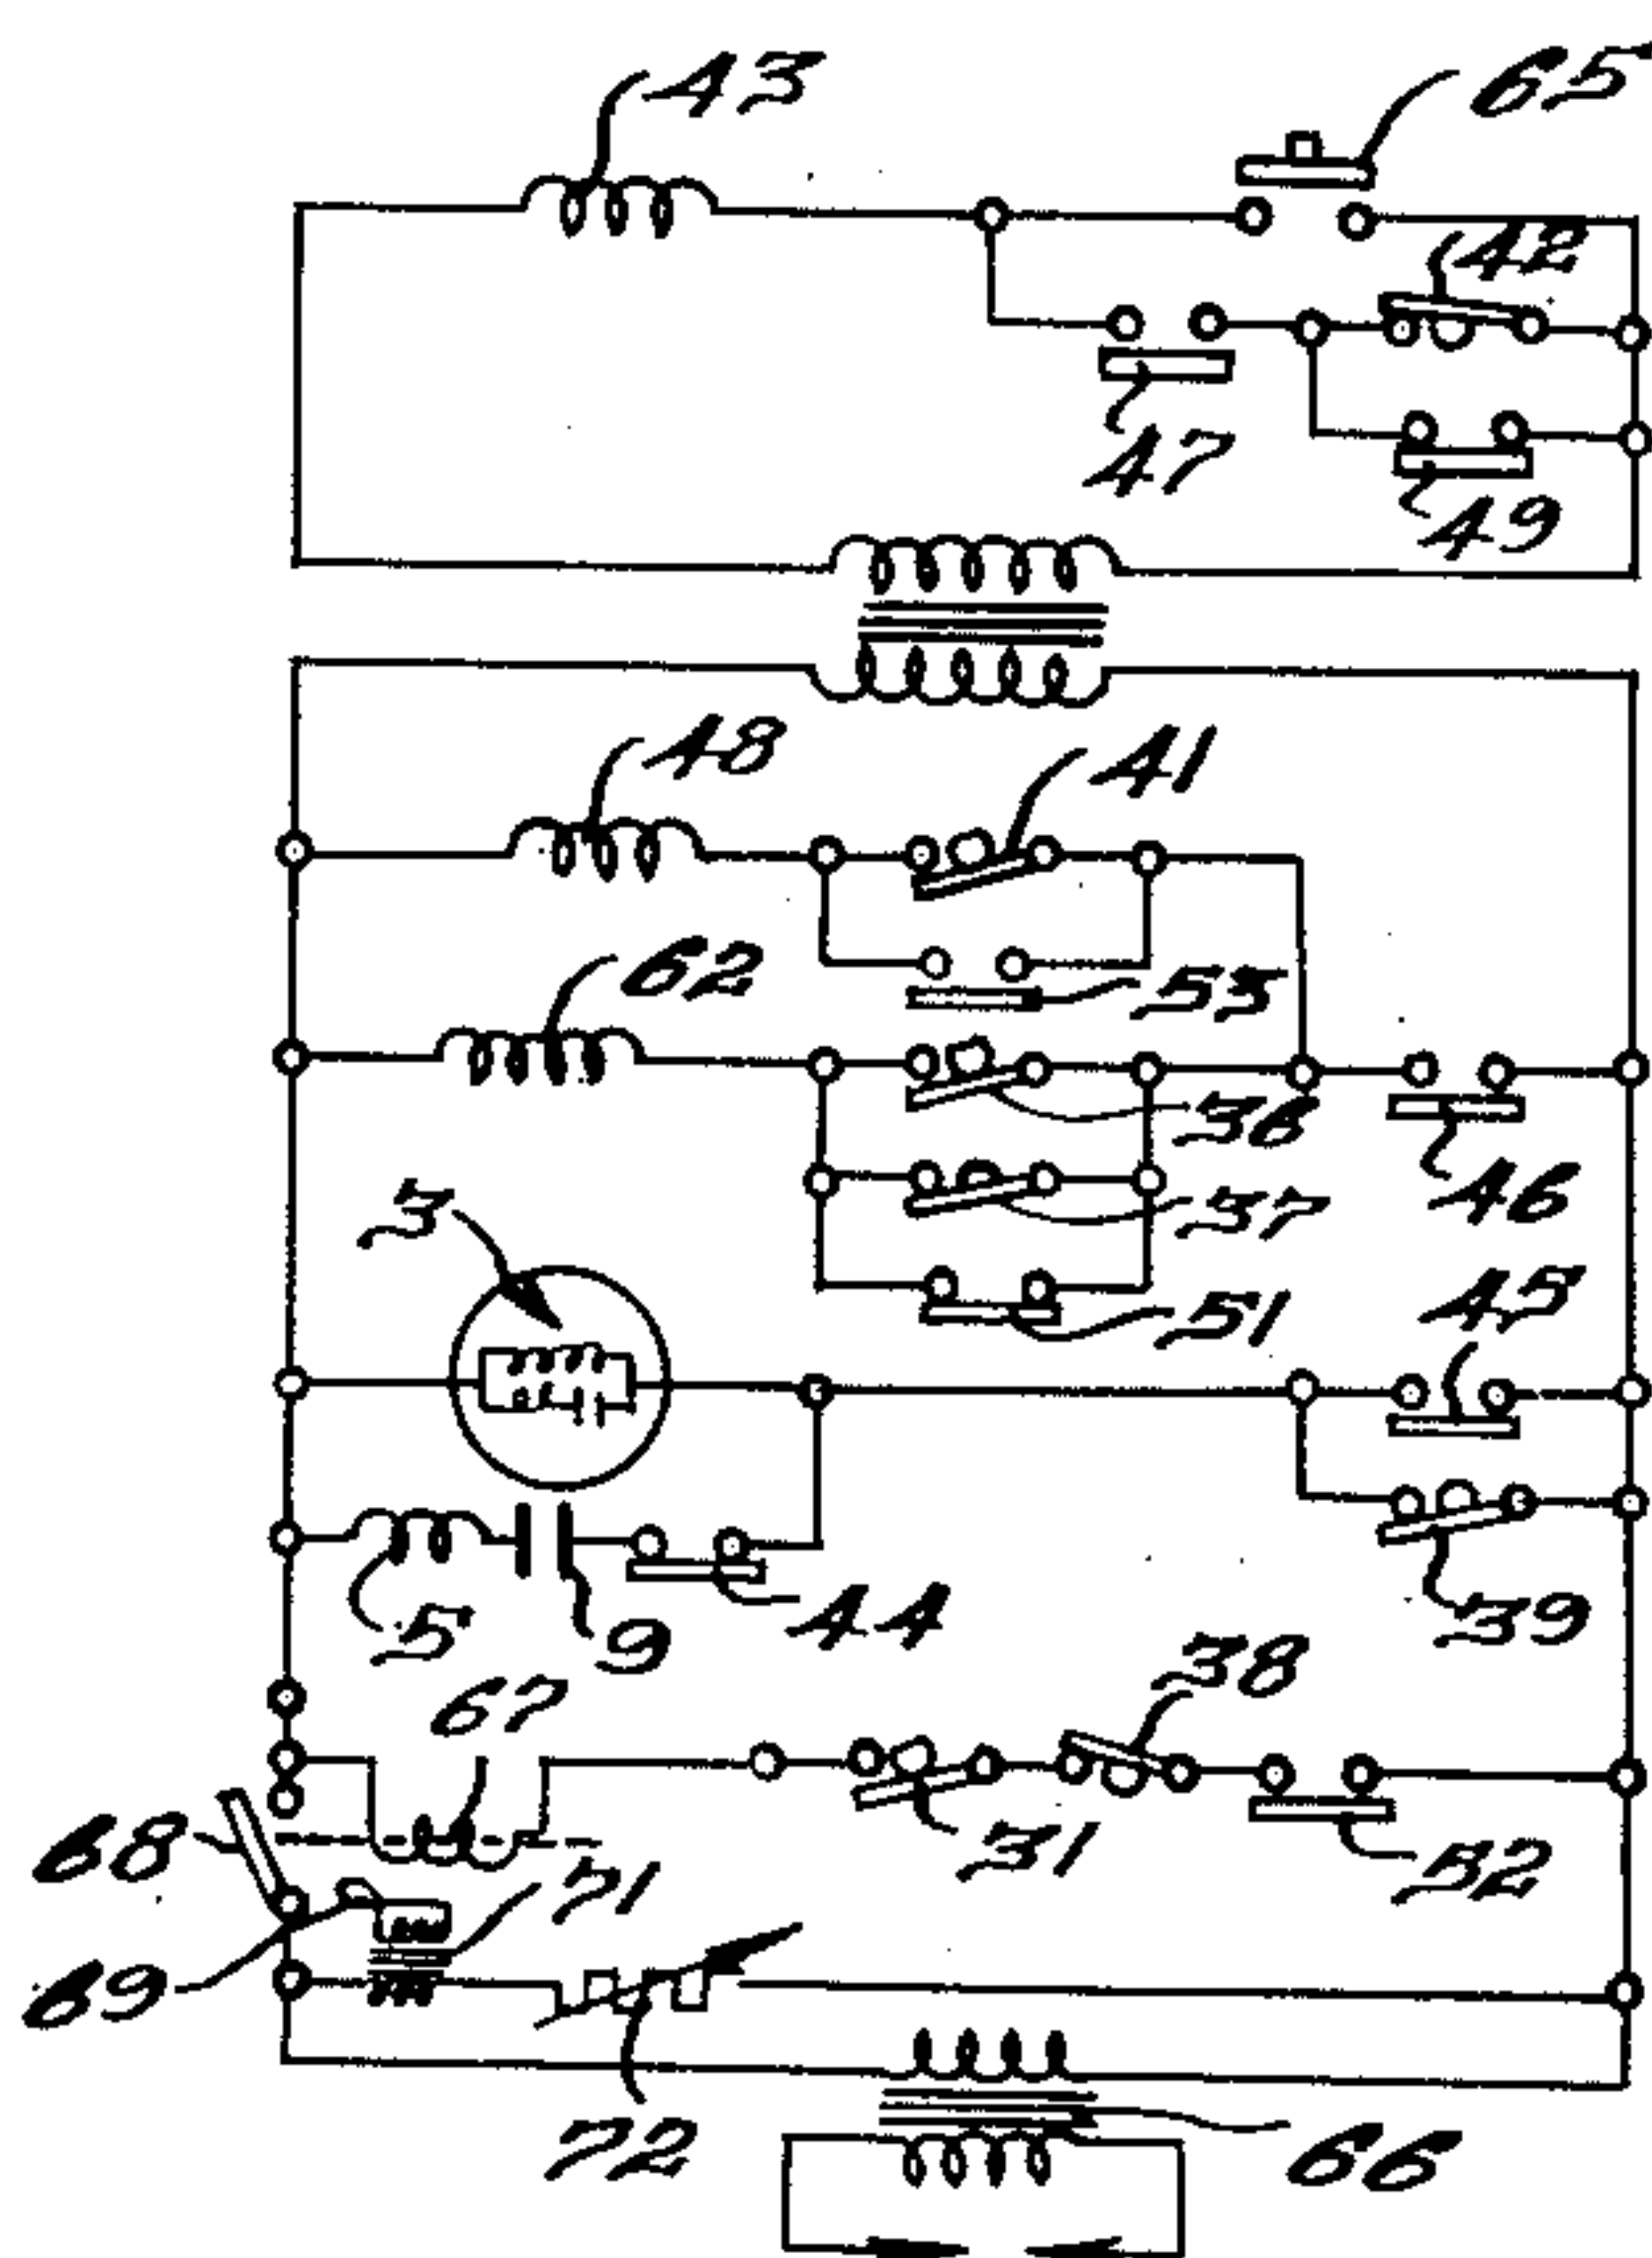 43
65
42
47
49
48
41
62
53
36
37
46
3
51
45
5
9
44
39
67
38
68
31
52
71
69
72
66